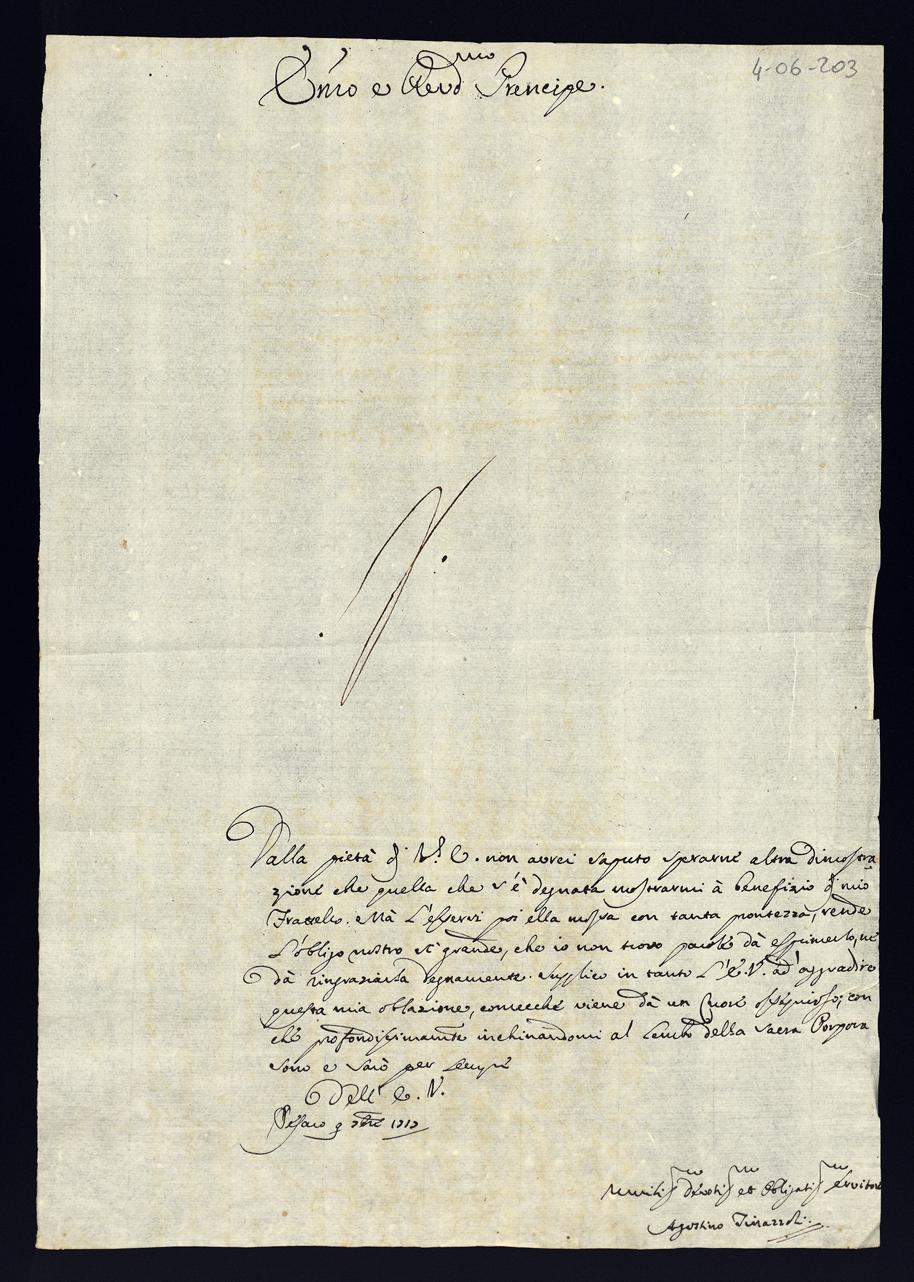 4-06-203
Em̃o e Reud.mo Prencipe.
Dalla pietà di V.a E. non avrei saputo sperarne altra dimostra
zione che quella che s'è degnata mostrarmi à benefizio di mio
Fratello. Mà l'essersi poi ella mossa con tanta prontezza, rende
l'obligo nostro sì grande, che io non trovo parole dà esprimerlo, nè
dà ringraziarla degnamente. Supplico in tanto l'E. V. ad' aggradire
questa mia oblazione, comecchè viene dà un Cuore ossequioso; con
chè profondissimamente inchinandomi al Lembo della sacra Porpora
sono e sarò per sempre
Dell' E. V.
Pesaro
Umiliss.mo Devotiss.mo et Obligatiss.mo Servitore
Agostino